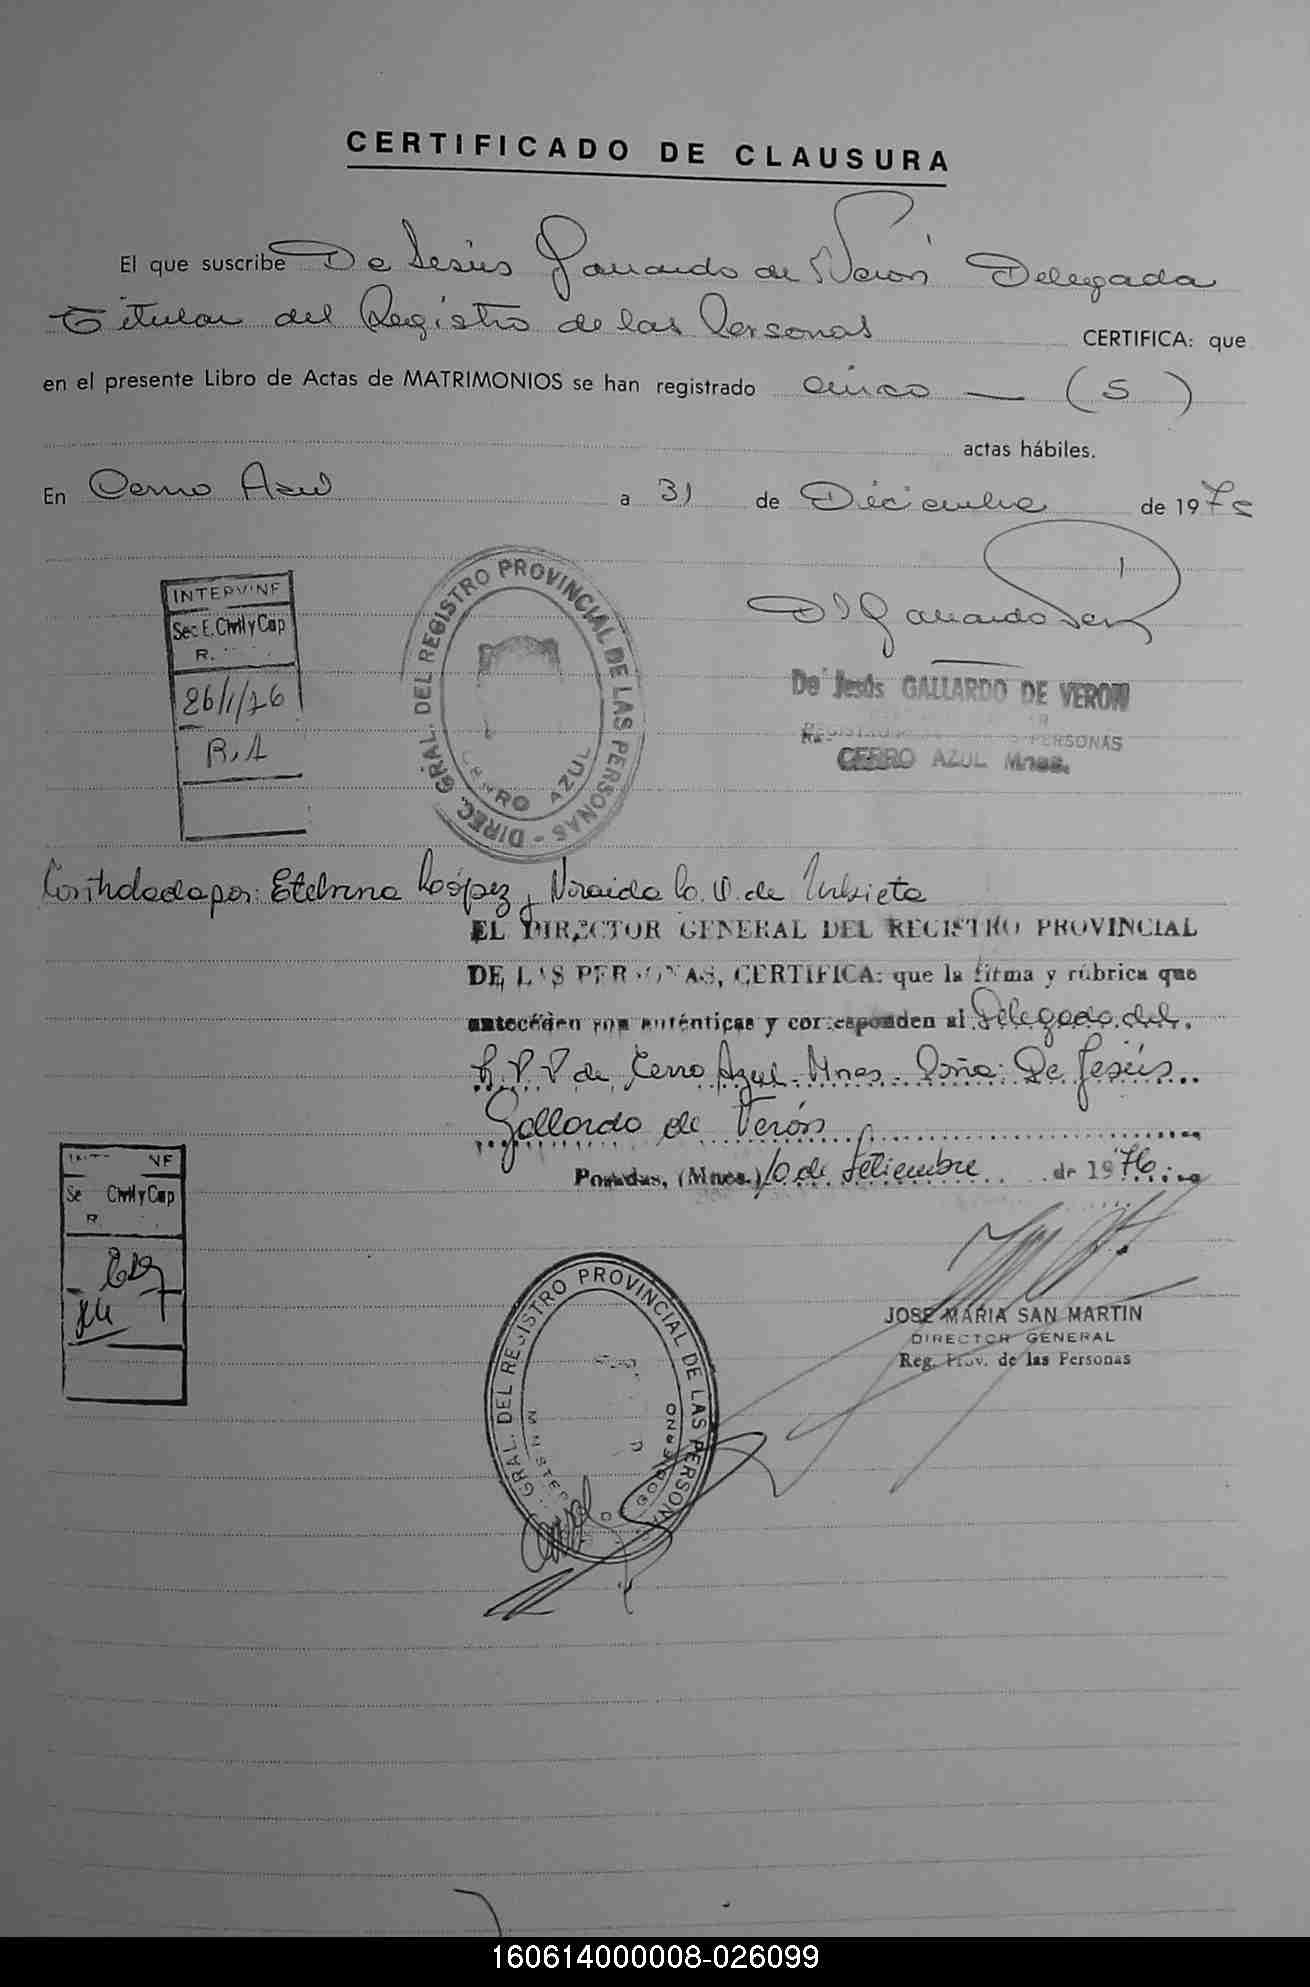 CERTIFICADO DE CLAUSURA
El que suscribe De Jesús Gallardo de Verón Delegada
Titular del Registro de las Personas CERTIFICA: que
en el presente Libro de Actas de MATRIMONIOS se han registrado cinco — (5)
actas hábiles.
En Cerro Azul a 31 de Diciembre de 1975
INTERVINE
Sec E. Civil y Cap
R.
26/1/76
R.A
DIREC. GRAL. DEL REGISTRO PROVINCIAL DE LAS PERSONAS -
CERRO AZUL
D J Gallardo
De Jesús GALLARDO DE VERON
REGISTRO PERSONAS
CERRO AZUL Mnes.
Controlada por: Etelvina López y Noraida de Urbieta
EL DIRECTOR GENERAL DEL REGISTRO PROVINCIAL
DE LAS PERSONAS, CERTIFICA: que la firma y rúbrica que
anteceden son auténticas y corresponden al Delegado del
R.P.P de Cerro Azul - Mnes - Doña: De Jesús
Gallardo de Verón
Posadas, (Mnes.) 10 de Setiembre de 1976
Civil y Cap
R.
GRAL. DEL REGISTRO PROVINCIAL DE LAS PERSONAS
JOSE MARIA SAN MARTIN
DIRECTOR GENERAL
Reg. Prov. de las Personas
160614000008-026099